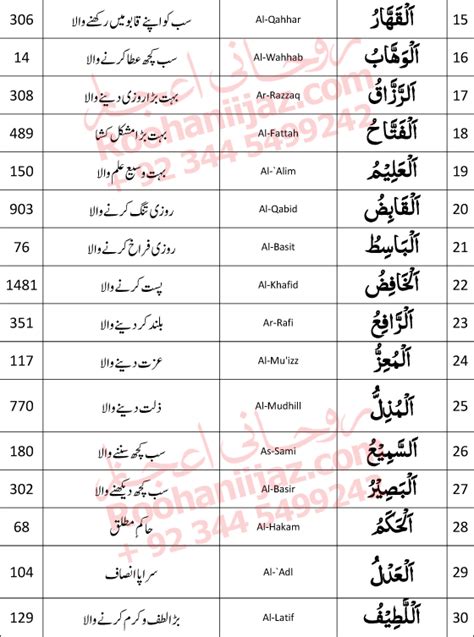 306 سب کو اپنے قابو میں رکھنے والا Al-Qahhar اَلْقَهَّارُ 15
14 سب کچھ عطا کرنے والا Al-Wahhab اَلْوَهَّابُ 16
308 بہت بڑا روزی دینے والا Ar-Razzaq اَلرَّزَّاقُ 17
489 بہت بڑا مشکل کشا Al-Fattah اَلْفَتَّاحُ 18
150 بہت وسیع علم والا Al-`Alim اَلْعَلِيْمُ 19
903 روزی تنگ کرنے والا Al-Qabid اَلْقَابِضُ 20
76 روزی فراخ کرنے والا Al-Basit اَلْبَاسِطُ 21
1481 پست کرنے والا Al-Khafid اَلْخَافِضُ 22
351 بلند کر دینے والا Ar-Rafi اَلرَّافِعُ 23
117 عزت دینے والا Al-Mu'izz اَلْمُعِزُّ 24
770 ذلت دینے والا Al-Mudhill اَلْمُذِلُّ 25
180 سب کچھ سننے والا As-Sami اَلسَّمِيْعُ 26
302 سب کچھ دیکھنے والا Al-Basir اَلْبَصِيْرُ 27
68 حاکم مطلق Al-Hakam اَلْحَكَمُ 28
104 سراپا انصاف Al-`Adl اَلْعَدْلُ 29
129 بڑا لطف و کرم کرنے والا Al-Latif اَللَّطِيْفُ 30
روحانی اعجاز
Roohaniijaz.com
+ 92 344 5499242
روحانی اعجاز
Roohaniijaz.com
+ 92 344 5499242